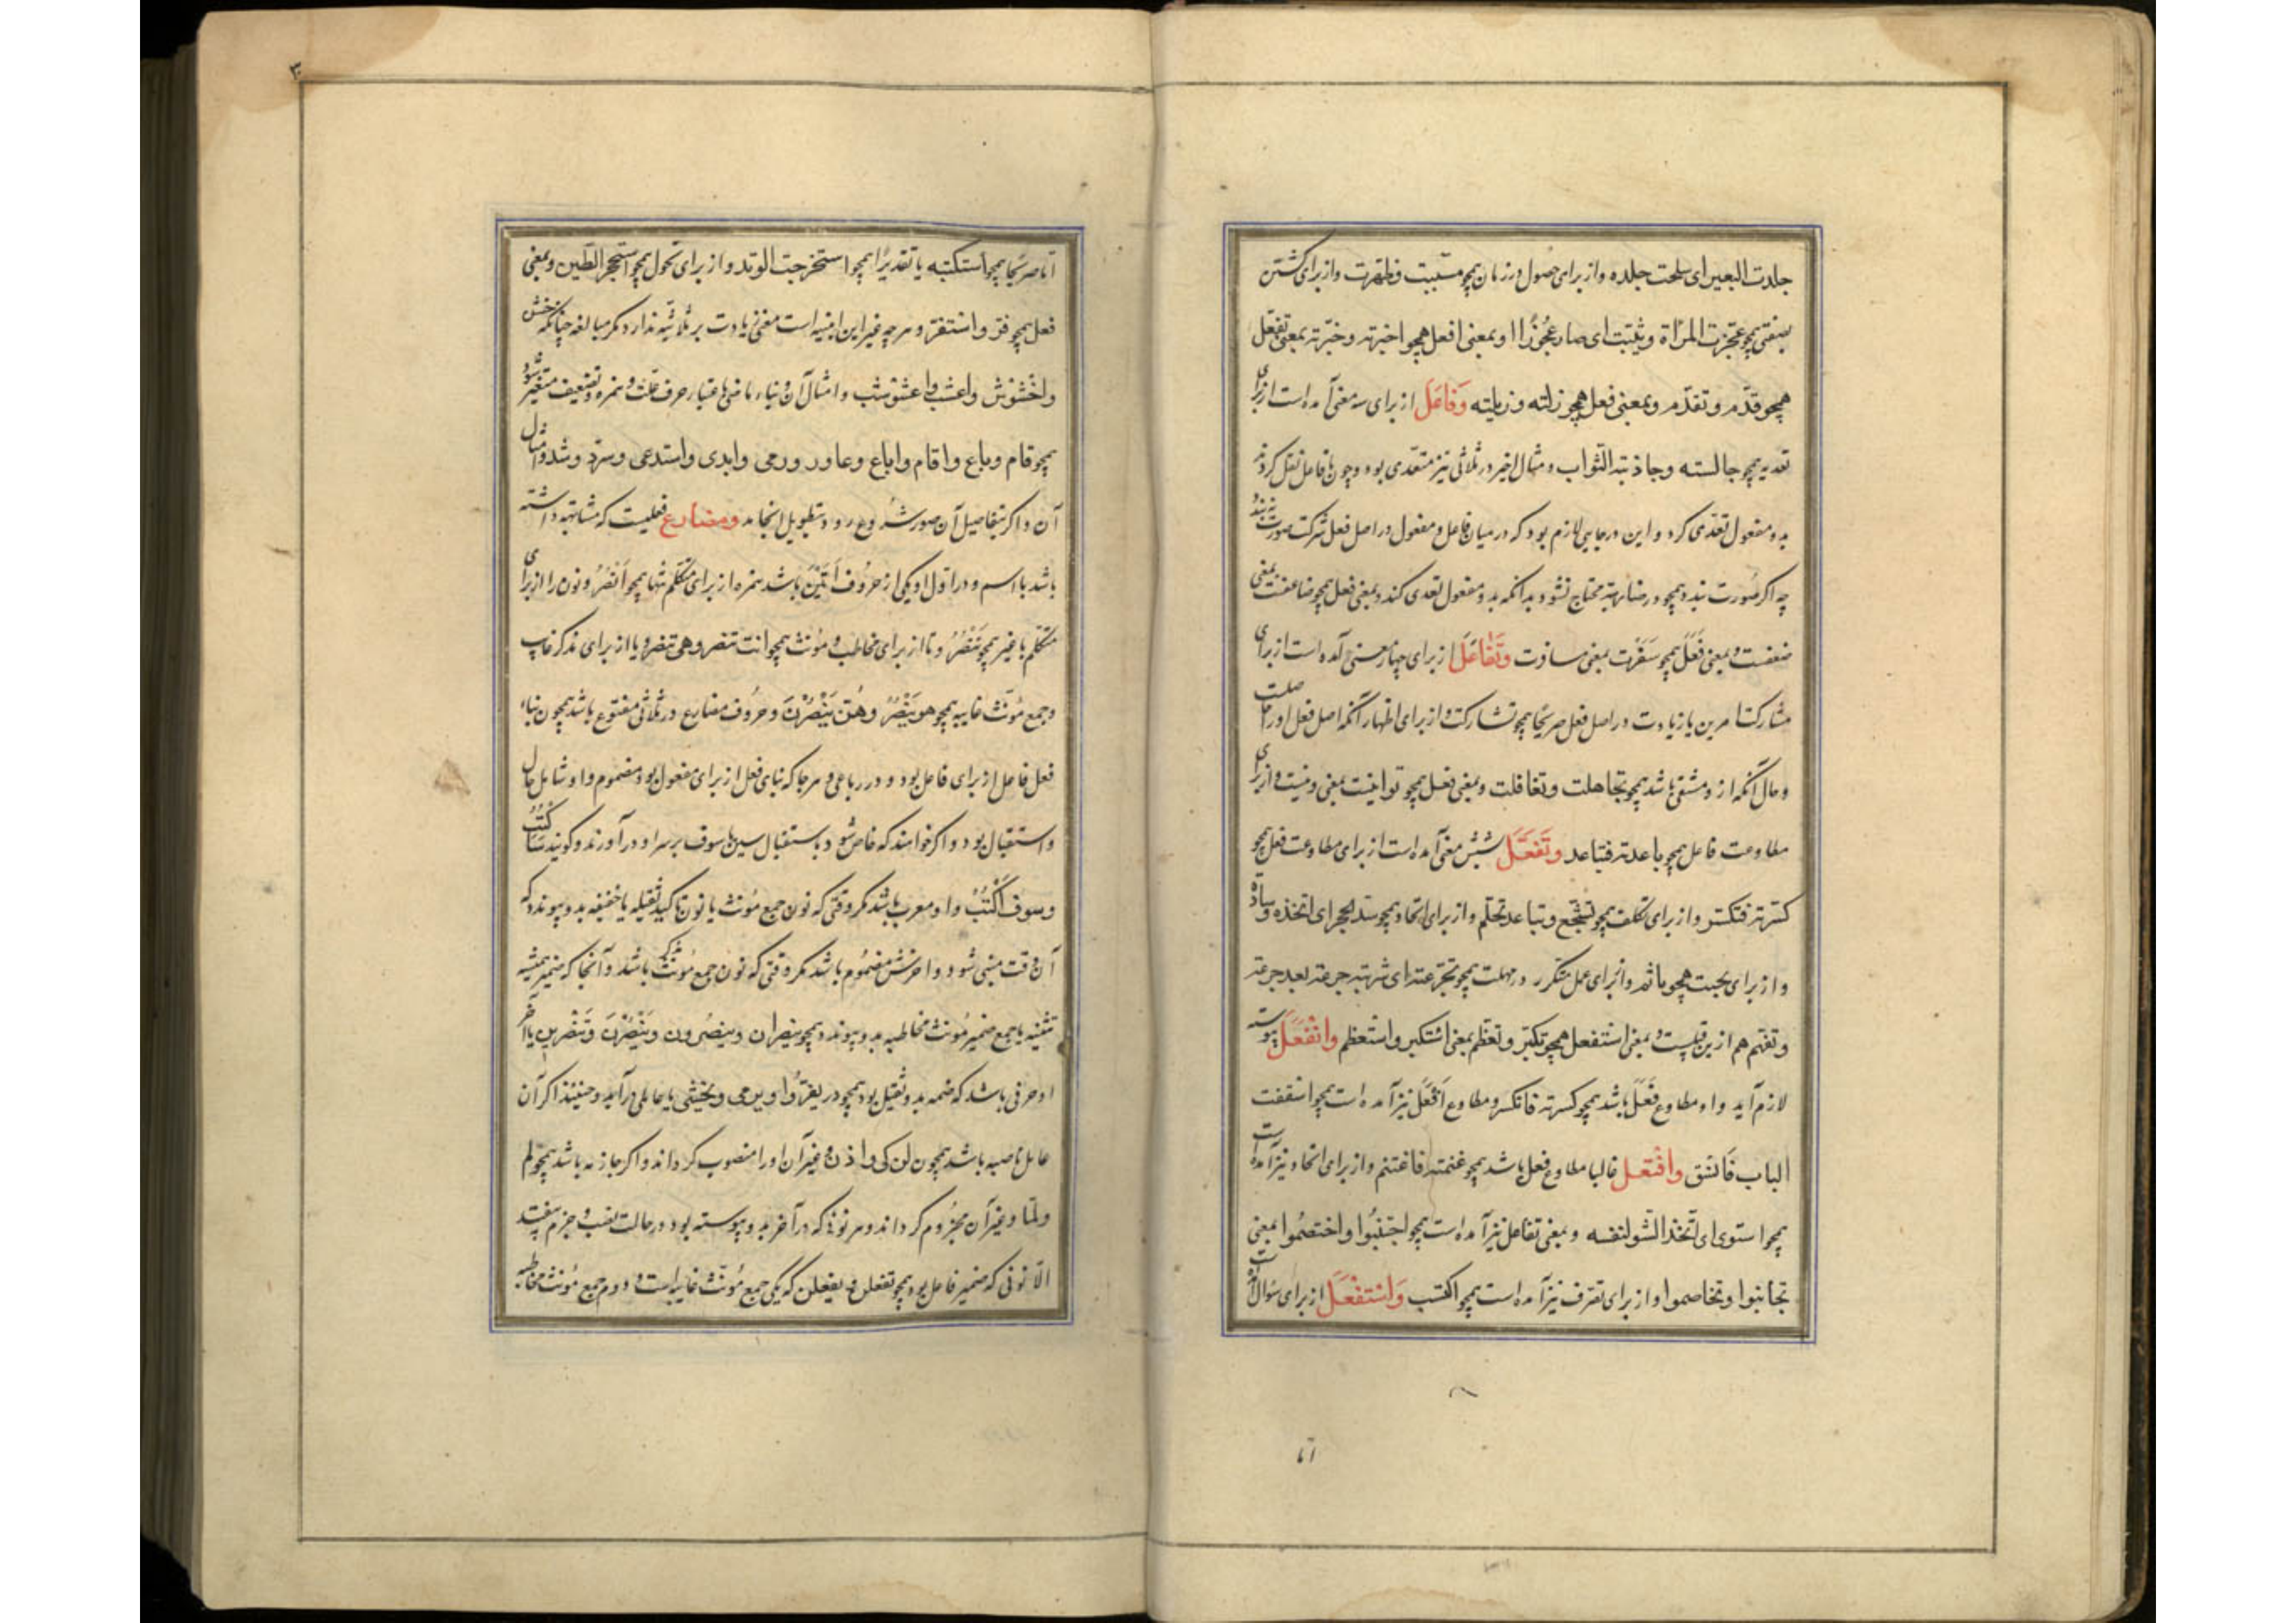 جلدت البعیر ای سلخت جلده و از برای حصول در زمان همچو مسیت و ظهرت و از برای گشتن
بصفتی همچو عجزت المرأة و ثیبت ای صار عجوزا و بمعنی افعل همچو اخبرته و خبرته بمعنی تفعل
همچو قدم و تقدم و بمعنی فعل همچو زلته و زیلته وَفاعَلَ از برای سه معنی آمده است از برای
تعدیه همچو جالسته و جاذبته الثواب و مثال اخیر در ثلاثی نیز متعدی بود و چون با فاعل نقل کردند
بدو مفعول تعدی کرد و این در جایی لازم بود که در میان فاعل و مفعول در اصل فعل شرکت صورت نبندد
چه اگر صورت بندد همچو در ضاربته محتاج نشود بدانکه بدو مفعول تعدی کند و بمعنی فعل همچو ضاعفت بمعنی
ضعفت و بمعنی فَعَلَ همچو سَفَرْت بمعنی سافرت وَتَفاعَلَ از برای چهار معنی آمده است از برای
مشارکت امرین یا زیادت در اصل فعل صریحا همچو تشارکت و از برای اظهار آنکه اصل فعل او را حاصلست
و حال آنکه ازو منتفی باشد همچو تجاهلت و تغافلت و بمعنی فعل همچو توانیت بمعنی ونیت و از برای
مطاوعت فاعل همچو باعدته فتباعد وتَفَعَّلَ شش معنی آمده است از برای مطاوعت فعل همچو
کسرته فتکسر و از برای تکلف همچو تشجع و تحلم و از برای اتخاذ همچو توسد الحجر ای اتخذه وسادة
و از برای تجنب همچو تأثم و از برای عمل متکرر در مهلت همچو تجرعته ای شربته جرعة بعد جرعة
و تفهم هم ازین قبیلست و بمعنی استفعل همچو تکبر و تعظم بمعنی استکبر و استعظم وانْفَعَلَ پیوسته
لازم آید و او مطاوع فَعَلَ باشد همچو کسرته فانکسر و مطاوع اَفْعَلَ نیز آمده است همچو اسقفت
الباب فانسفق وافْتَعَل غالبا مطاوع فعل باشد همچو غنمته فاغتنم و از برای اتخاذ نیز آمده است
همچو استوی ای اتخذ الشو لنفسه و بمعنی تفاعل نیز آمده است همچو اجتنبوا و اختصموا بمعنی
تجانبوا و تخاصموا و از برای تصرف نیز آمده است همچو اکتسب وَاسْتَفْعَلَ از برای سؤال است
اما
۳
اما صریحا همچو استکتبه یا تقدیرا همچو استخرجت الوتد و از برای تحول همچو استحجر الطین و بمعنی
فعل همچو قر و استقر و هر چه غیر این ابنیه است معنی زیادت بر ثلاثیه ندارد مگر مبالغه چنانکه خشن
واخشوشن و اعشب و اعشوشب و امثال آن و بناء ماضی باعتبار حرف علت و همزه و تضعیف متغیر شود
همچو قام و باع و اقام و اباع و عاور و رمی و ابدی و استدعی و سرّ و شد و امثال
آن و اگر بتفاصیل آن صور شروع رود بتطویل انجامد ومضارع فعلیست که مشابهه داشته
باشد با اسم و در اول او یکی از حروف اَتَیْنَ باشد همزه از برای متکلم تنها همچو اَنْصُرُ و نون را از برای
متکلم با غیر همچو نَنْصُرُ و تا از برای مخاطب و مؤنث همچو انت تنصر و هی تنصر و یا از برای مذکر غایب
و جمع مؤنث غایبه همچو هو یَنْصُرُ و هُنَّ یَنْصُرْنَ و حروف مضارع در ثلاثی مفتوح باشد همچون بناء
فعل فاعل از برای فاعل بود و در رباعی و هر جا که بنای فعل از برای مفعول بود مضموم و او شامل حال
و استقبال بود و اگر خواهند که خاص شود باستقبال سین یا سوف بر سر او در آورند و گویند سَاَکْتُبُ
و سوف اَکْتُبُ و او معرب باشد مگر وقتی که نون جمع مؤنث یا نون تاکید ثقیله یا خفیفه بدو پیوندد که
آن وقت مبنی شود و آخرش مضموم باشد مگر وقتی که نون جمع مؤنث باشد و آنجا که ضمیر همیشه
تثنیه یا جمع ضمیر مؤنث مخاطبه بدو پیوندد همچو ینصران و ینصرون و یَنْصُرْنَ و تَنْصُرین یا آخر
او حرفی باشد که ضمه بدو ثقیل بود همچو در یغزو و یرمی و یخشی یا عاملی درآید و حینئذ اگر آن
عامل ناصبه باشد همچون لن و کی و اذن و غیر آن او را منصوب گرداند و اگر جازمه باشد همچو لم
و لما و غیر آن مجزوم گرداند و هر نونی که در آخر بدو پیوسته بود در حالت نصب و جزم بیفتد
الا نونی که ضمیر فاعل بود همچو تفعلن و یفعلن که یکی جمع مؤنث غایبه است و دوم جمع مؤنث مخاطبه